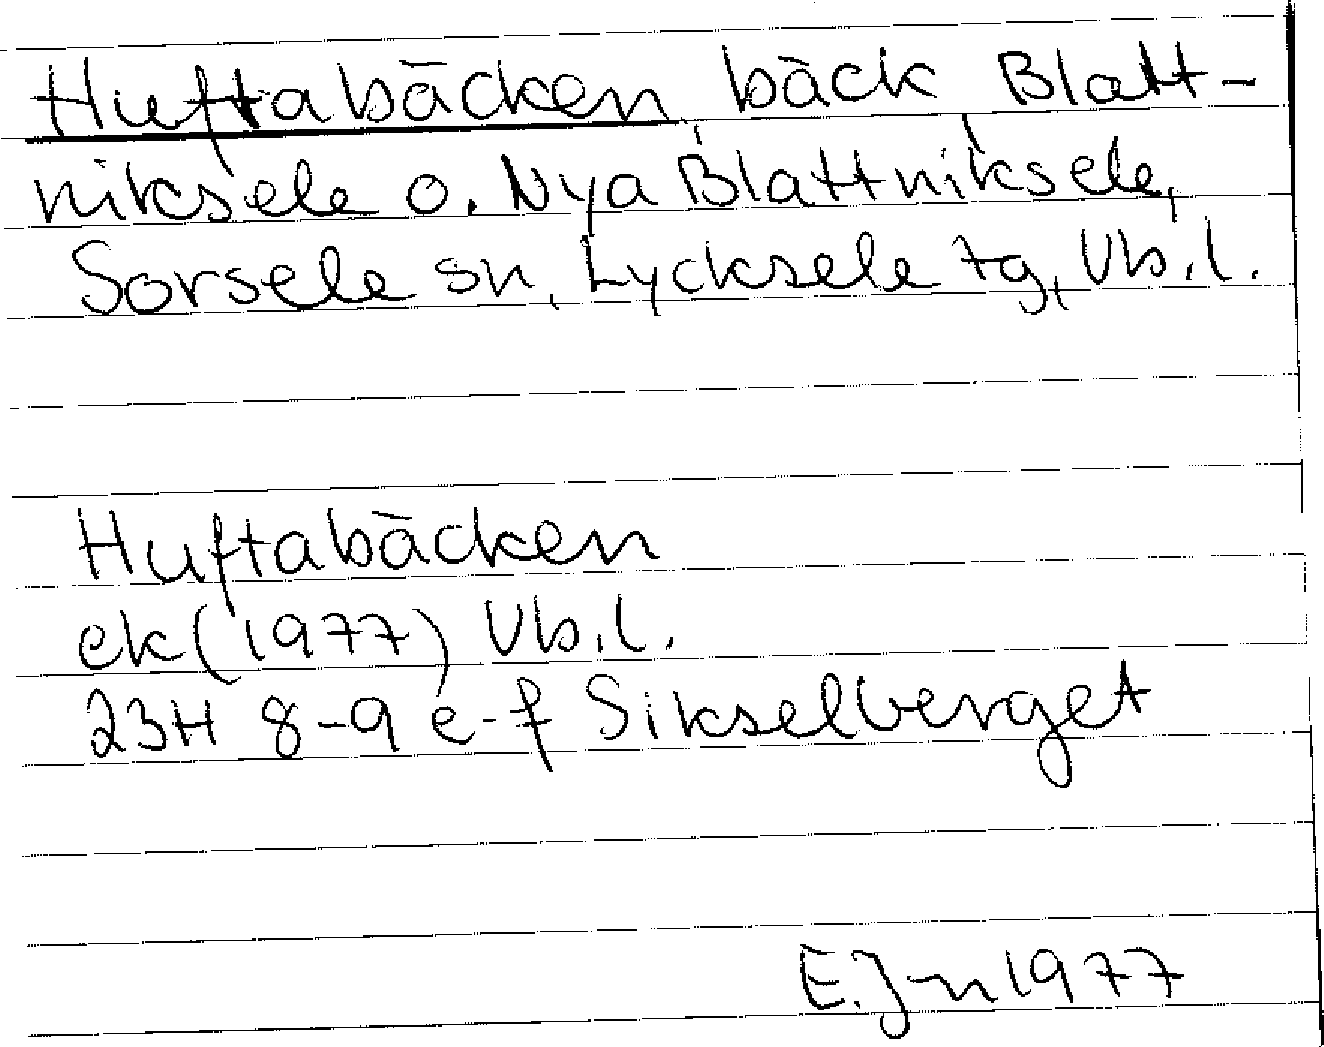 Huftabäcken bäck Blatt-
niksele o. Nya Blattniksele,
Sorsele sn, Lycksele tg, Vb.l.
Huftabäcken
ek (1977) Vb.l.
23H 8-9 e-f Sikselberget
E.J-n 1977